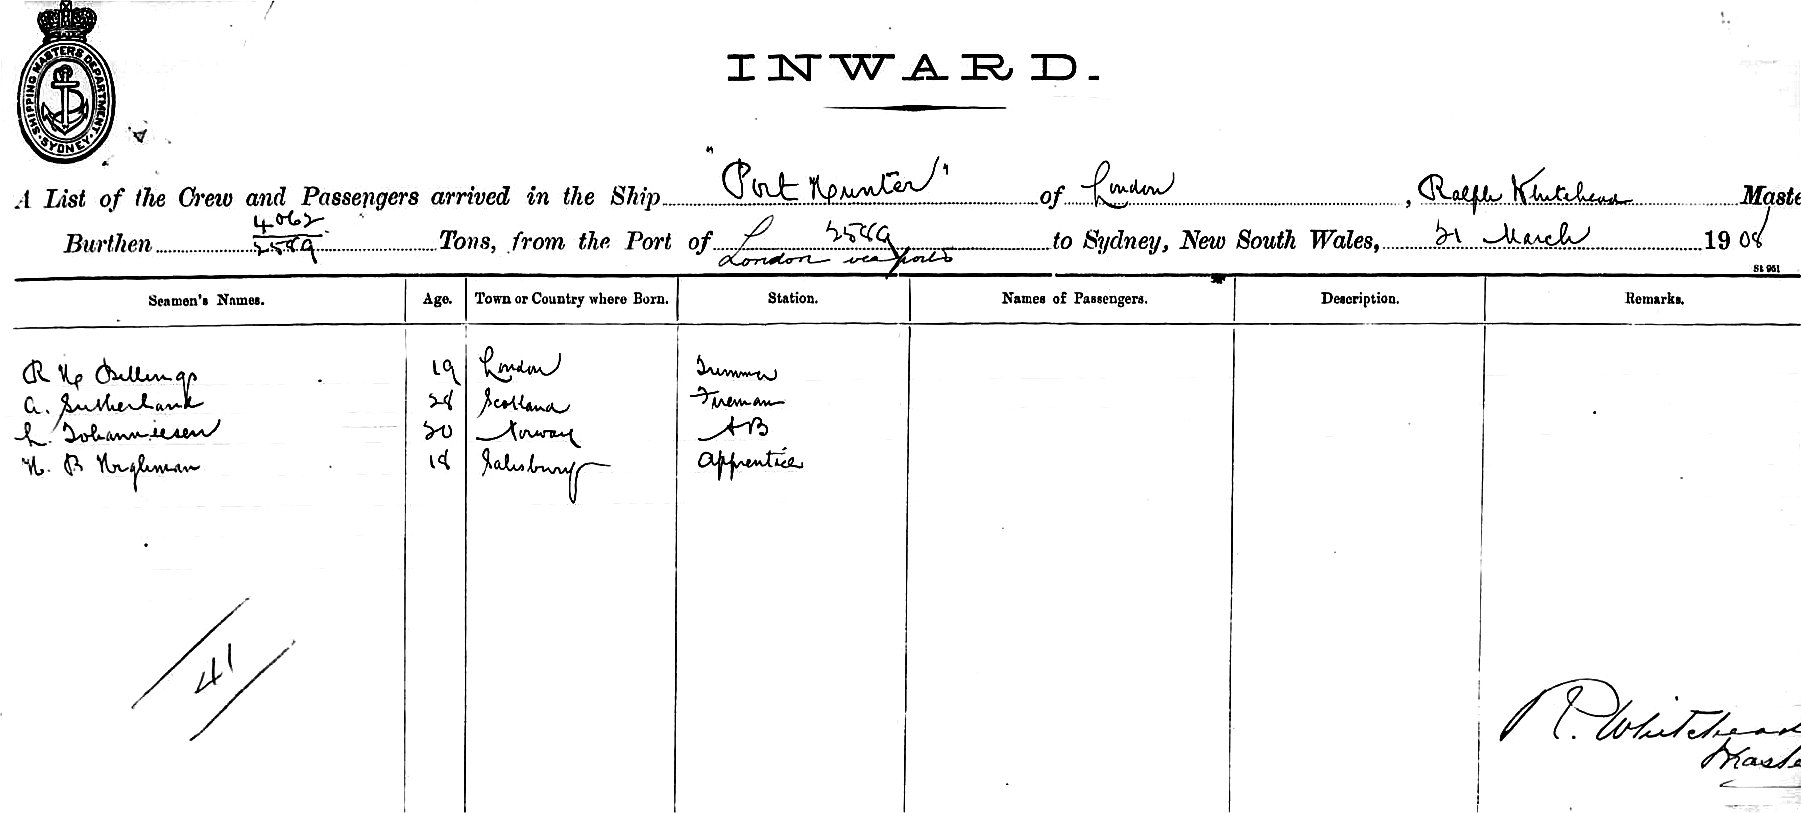 SHIPPING MASTERS DEPARTMENT. SYDNEY.
INWARD.
A List of the Crew and Passengers arrived in the Ship "Port Hunter" of London, Ralph Whitehead Maste
Burthen 4062 / 2589 Tons, from the Port of L 2589 to Sydney, New South Wales, 21 March 1908
London via ports
St 961
Seamen's Names. Age. Town or Country where Born. Station. Names of Passengers. Description. Remarks.
R H Billings 19 London Trimmer
A. Sutherland 28 Scotland Fireman
L. Johanniesen 20 Norway AB
H. B 18 Salisbury Apprentice
41
R. Whitehead
Maste